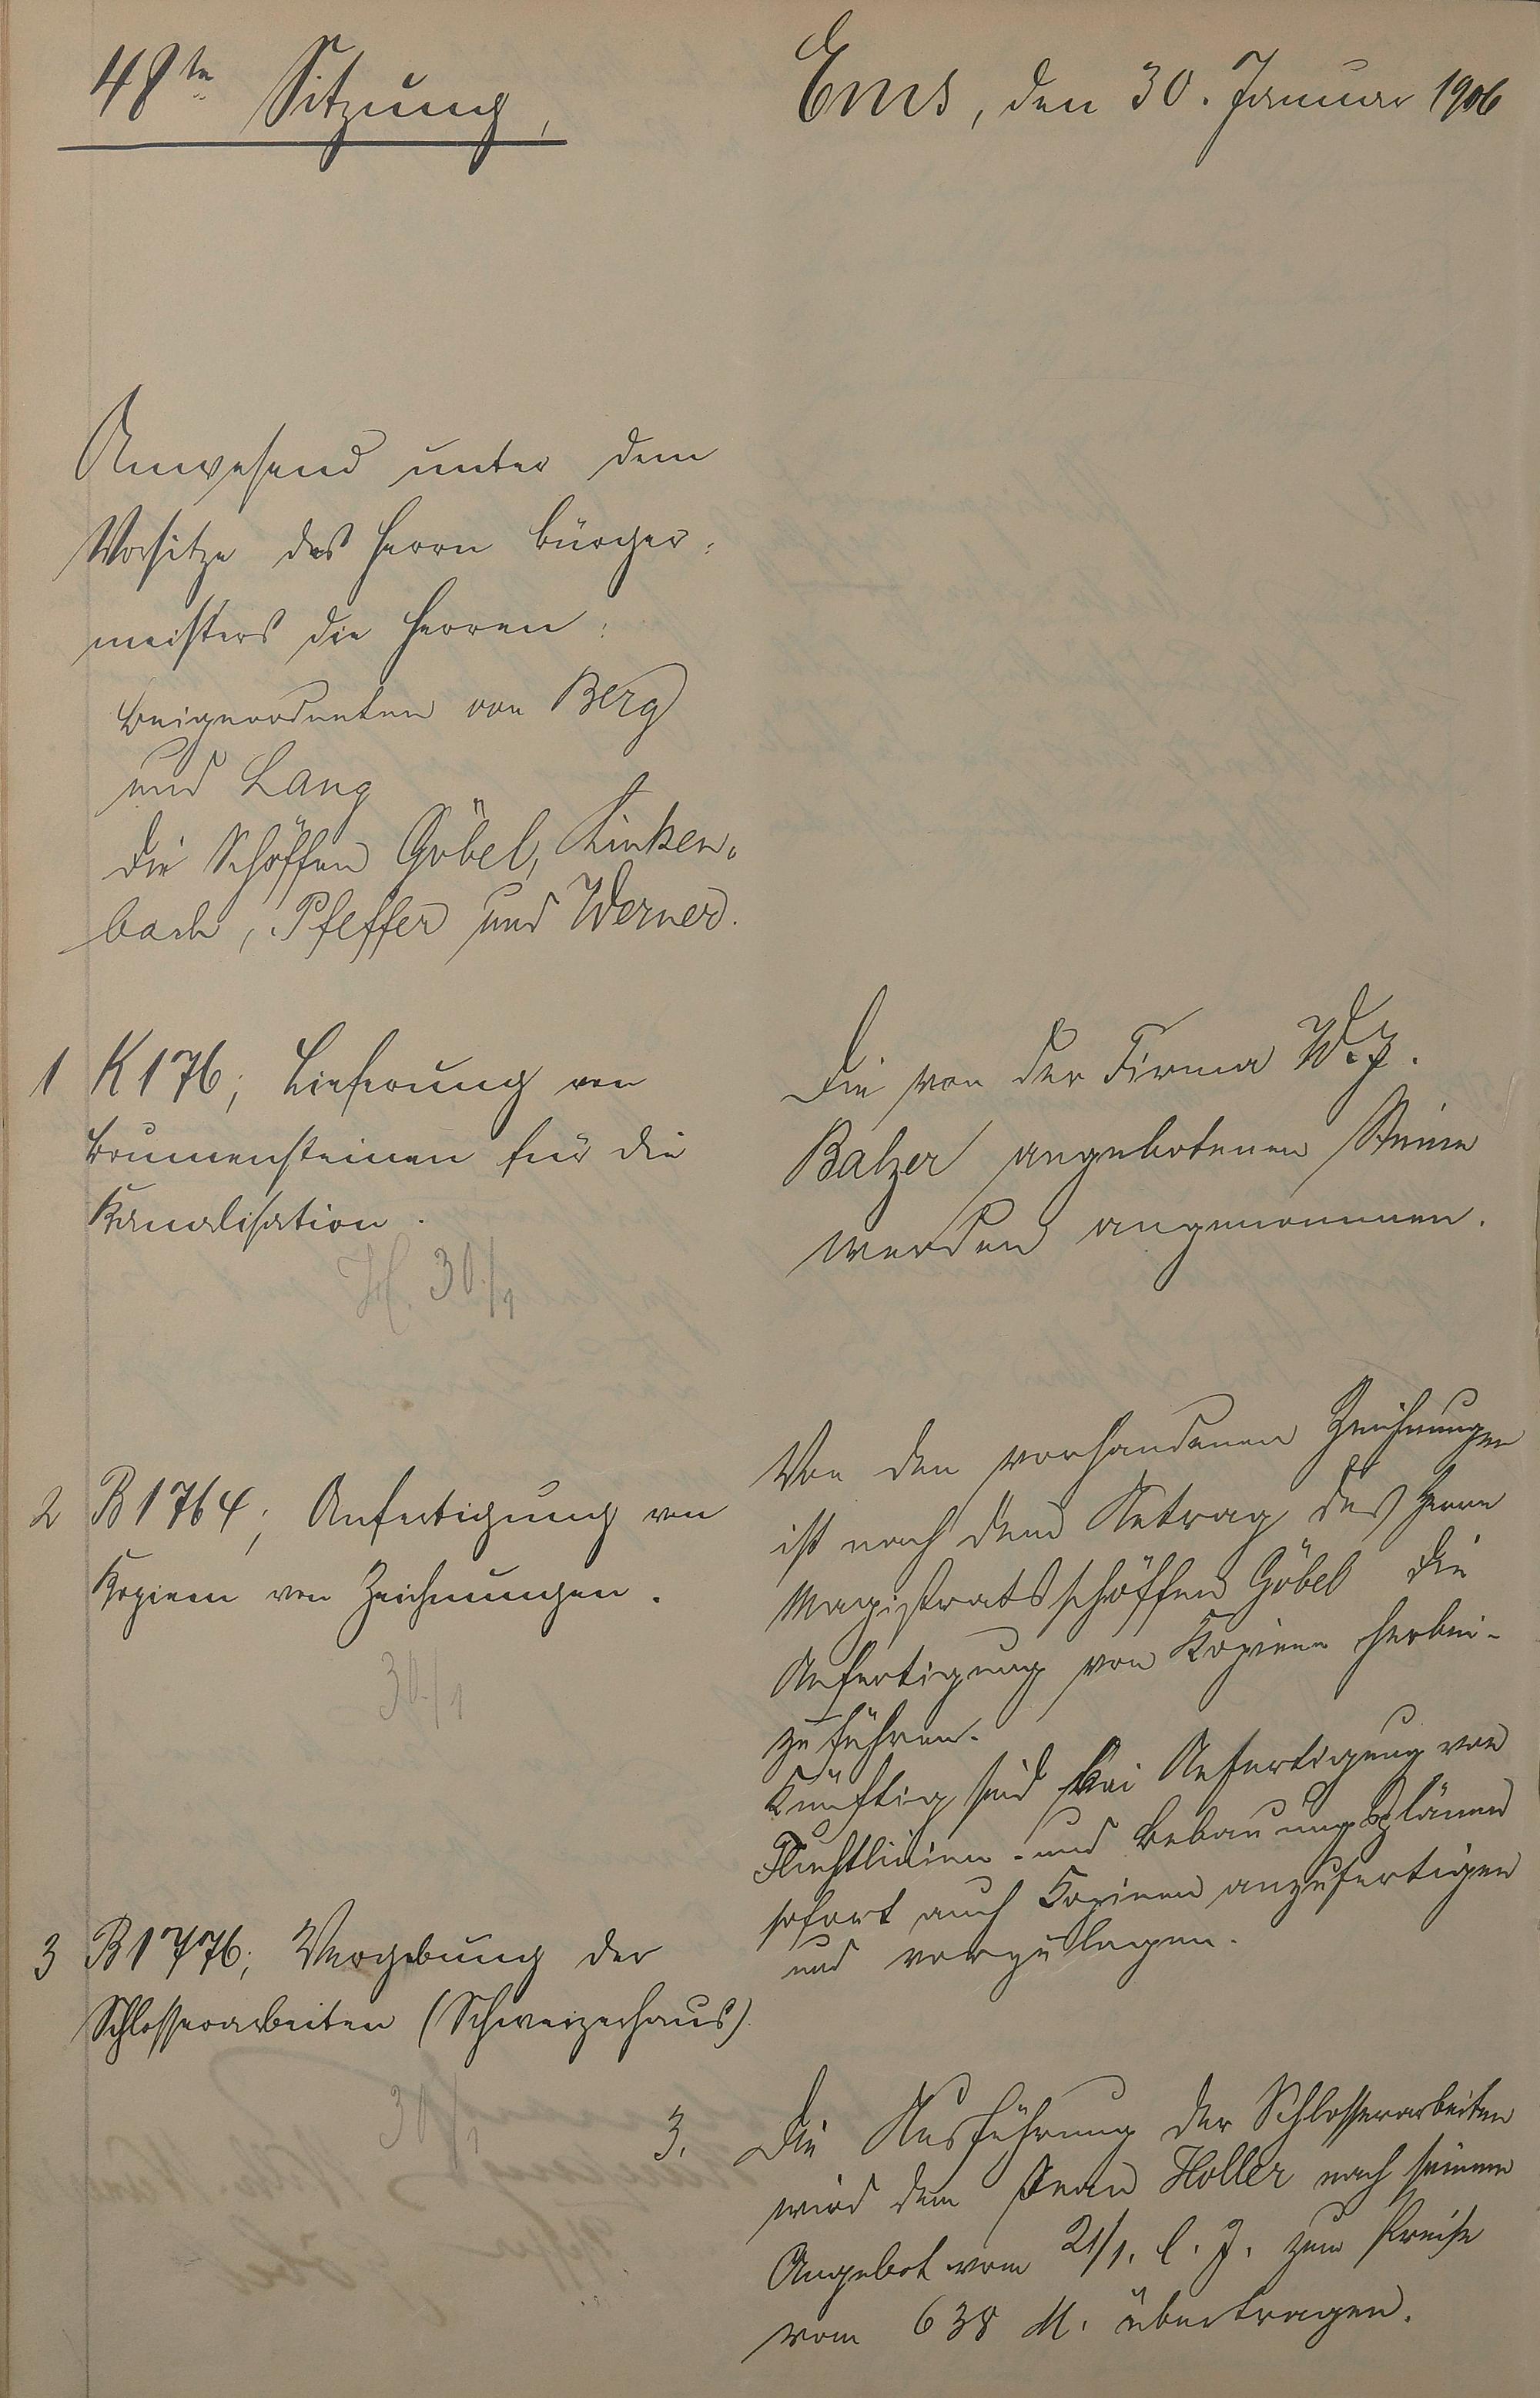 48te Sitzung,
Ems, den 30. Januar 1906
Anwesend unter dem
Vorsitze des Herrn Bürger-
meisters die Herren:
Beigeordneten von Berg
und Lang
die Schöffen Göbel, Linken-
bach, Pfeffer und Werner.
1 K 176; Lieferung von
Brunnensteinen für die
Kanalisation.
H. 30/1
Die von der Firma W. J.
Balzer angebotenen Steine
werden angenommen.
2 B 1764; Anfertigung von
Kopieen von Zeichnungen.
30/1
Von den vorhandenen Zeichnungen
ist nach dem Antrag des Herrn
Magistratsschöffen Göbel die
Anfertigung von Kopieen herbei-
zuführen.
Künftig sind bei Anfertigung von
Fluchtlinien- und Bebauungsplänen
sofort auch Kopieen anzufertigen
und vorzulegen.
3 B 1776; Vergebung der
Schlosserarbeiten (Schweizerhaus).
30/1
3. Die Ausführung der Schlosserarbeiten
wird dem Jean Holler nach seinem
Angebot vom 21/1. l. J. zum Preise
von 638 M. übertragen.